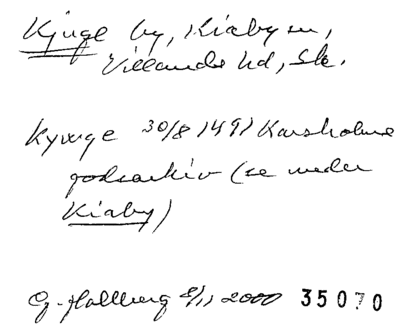 Kjuge by, Kiaby sn,
Villands hd, Sk.
Kywge 30/8 1491 Karsholms
godsarkiv (se under
Kiaby)
G. Hallberg 8/11 2000 35070